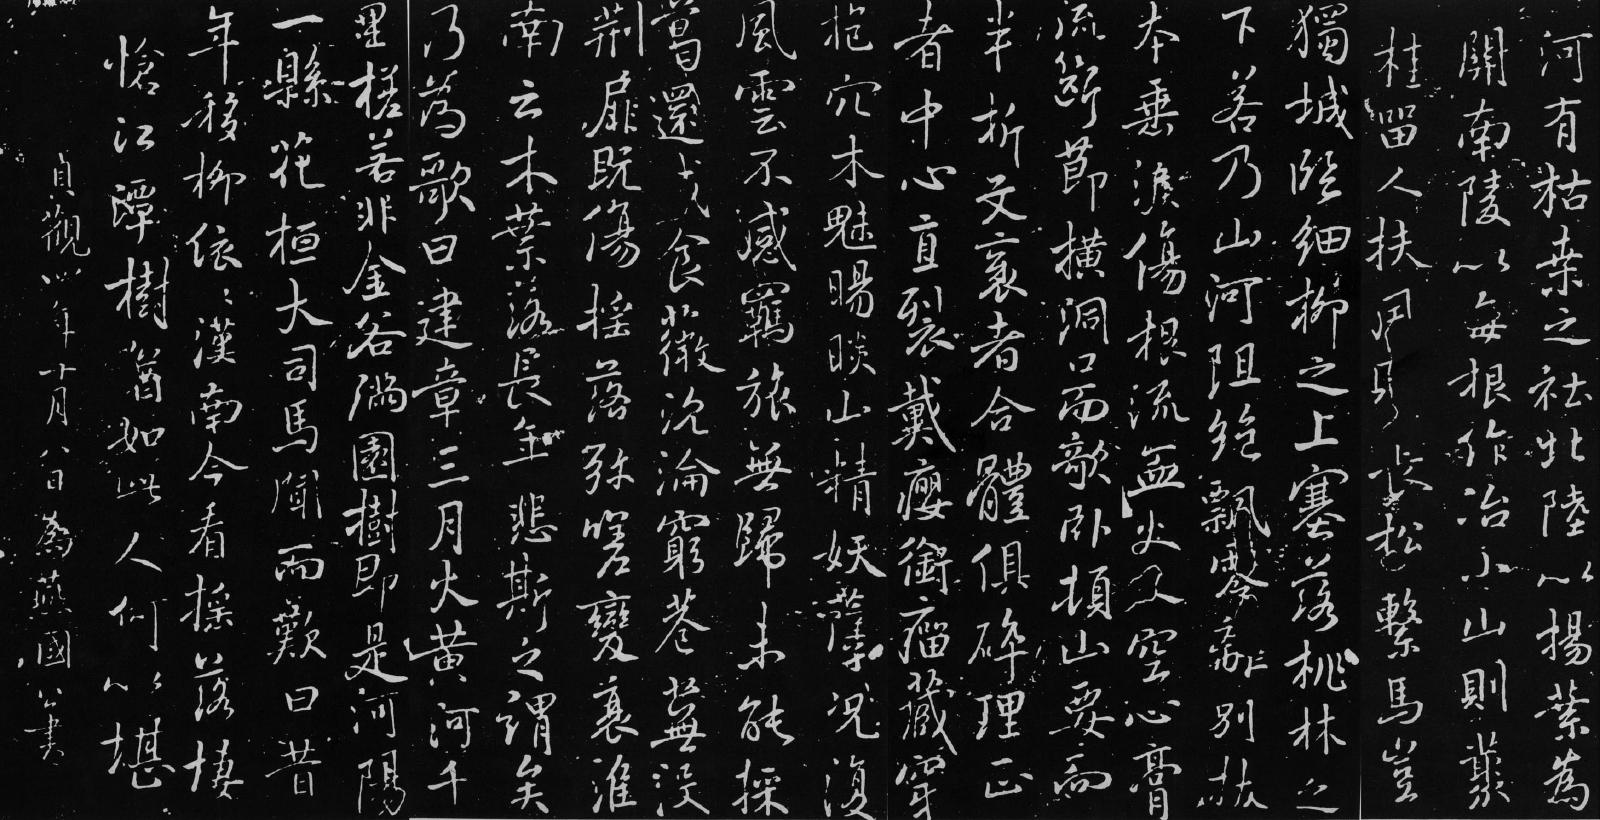 河有枯桑之社北陸以揚葉為
關南陵以每根作冶小山則叢
桂留人扶風則長松繫馬豈
獨城臨細柳之上塞落桃林之
下若乃山河阻絶飄零離別拔
本垂淚傷根流血火入空心膏
流斷節橫洞口而欹臥頓山要而
半折文衺者合體俱碎理正
者中心直裂戴癭銜瘤藏穿
抱穴木魅睗睒山精妖孽况復
風雲不感羇旅無歸未能採
葛還成食薇沉淪窮巷蕪没
荆扉既傷揺落弥嗟變衰淮
南云木葉落長年悲斯之謂矣
乃為歌曰建章三月火黄河千
里槎若非金谷滿園樹即是河陽
一縣花桓大司馬聞而歎曰昔
年移柳依〻漢南今看揺落悽
愴江潭樹酋如此人何以堪
貞觀四年十月八日為燕國公書